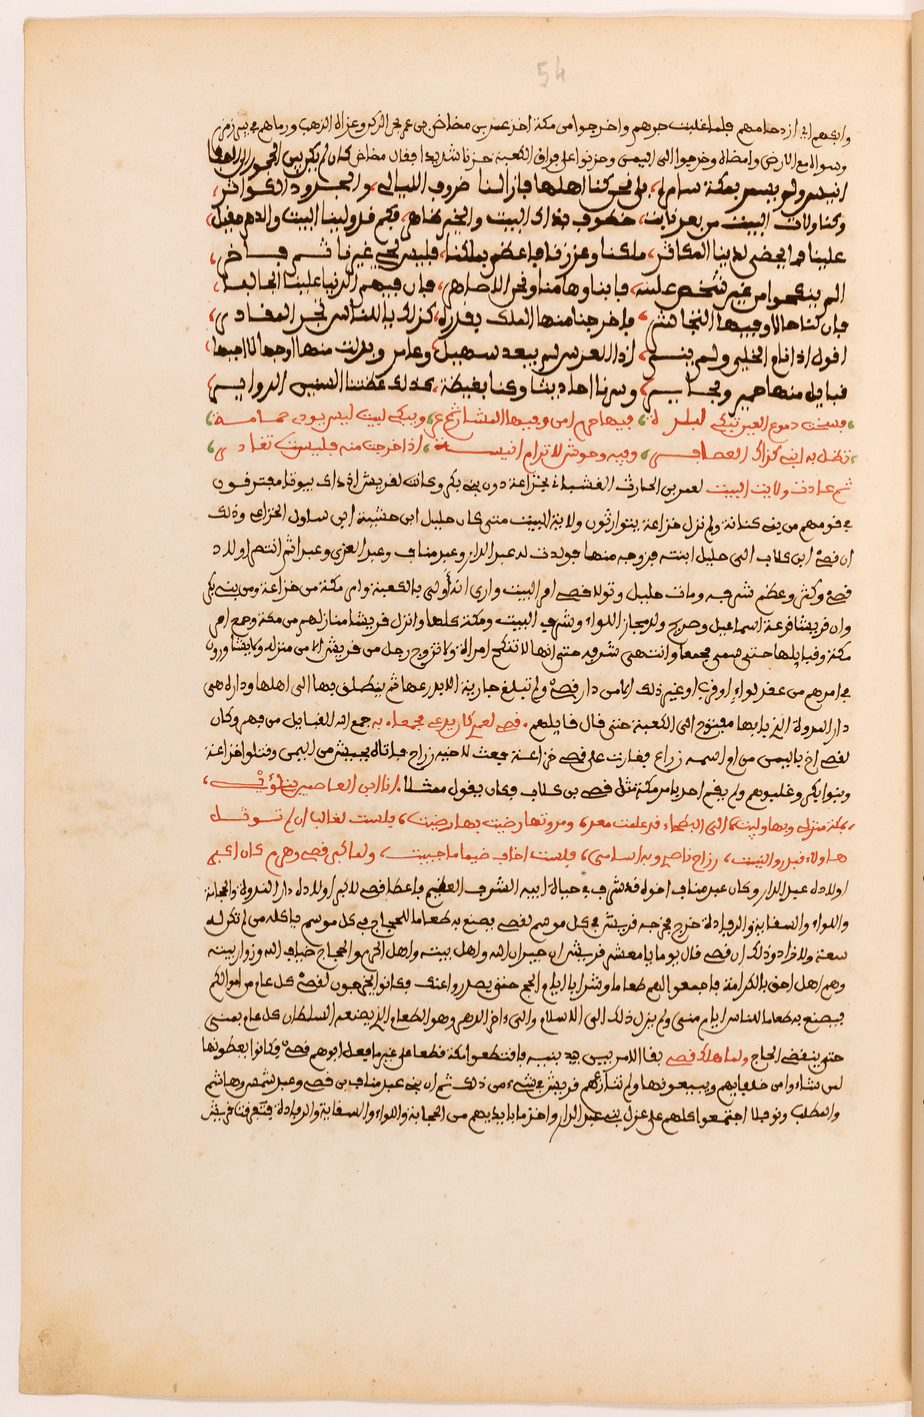 54
فلما غلبت جرهم واخرجوا من مكة اخذ عمر بن مخاض بن عم غزاله الذهب ورماهم في بير زمزم
وسوا لا مع الارض وخرجوا الى اليمن وحزنوا على فراق الكعبة حزنا شديدا فقال مخاض كان لم يكن بين الحجون الى الصفا
انيس ولم يسمر بمكة سامر بلى نحن كنا اهلها فازالنا ضروب الليالي والجدود العواثر
وكنا ولات البيت من بعد نابت نطوف بذاك البيت والخير ظاهر
علينا فما يحضى لدينا المكاثر ملكنا وعززنا فاعظم بملكنا فليس لحي غيرنا ثم فاخر
فان كنا هالا وفيها التجاشر فاخرجنا منها المليك بقدرة كذلك ياللناس تجر المقادر
اقول اذا نام الخلي ولم ينم اذا العرش لا يبعد سهيل وعامر وبدلت منها اوجها لا احبها
قبايل منها حمير وسرنا احاديثا وكنا بغبطة كذلك عضتنا السنين
فسحت دموع العين تبكي لبلدة فيها حرم امن وفيها المشاعر وتبكي لبيت ليس يوذى حمامه
تظل به امنا كذاك العصافر وفيه وحوش لا ترام انيسة اذا خرجت منه فليست تغادر
ثم عادت ولايت البيت لعمر بن الحارث الغبشاني بخزاعة دون بني بكر وكانت لقريش اذ ذاك بيوتا مفترقون
في قومهم من بني كنانة ولم تزل خزاعة يتوارثون ولاية البيت متى كان حليل ابن حبشية ابن سلول الخزاعي وذلك
ان قصي ابن كلاب الى حليل ابنته فزوجه منها فولدت له عبد الدار وعبد مناف وعبد العزى وعبد اثم انتشر اولاد
قصي وكثر وعظم شرفه ومات حليل وتولا قصي امر البيت وارى انه أولى بالكعبة وامر مكة من خزاعة ومن بني بكر
وان قريشا فرعة اسماعيل وصريح ولده فحاز اللواء وشرف البيت ومكة كلها وانزل قريشا منازلهم من مكة وجمع امر
مكة وقبايلها حتى سمي مجمعا وانتهى شرفه حتى انها لا تنكح امراة ولا تزوج رجل من قريش الا من منزله ولا يشاورون
في امرهم من عقد لواء او حرب او غير ذلك الا من دار قصي ولم تبلغ جارية الا يدرعها ثم ينطلق بها الى اهلها وداره هي
دار الندوة التي بابها مفتوح الى الكعبة حتى قال قايلهم قصي لعمري كان يدعى مجمعا به جمع الله القبايل من فهر وكان
لقصي اخ باليمن من امه اسمه زراح فغارت على قصي خزاعة فبعث لاخيه زراح فاتاه بجيش من اليمن وقتلوا خزاعة
وبنوا بكر وغلبوهم ولم يقم احد بامر مكة مثل قصي بن كلاب وكان يقول ممثلا انا ابن العاصمين بني لؤي
بمكة منزلي وبها وليت الى البطحاء قد علمت معد ومروتها رضيت بها رضيت فلست لغالب ان لم تؤثل
بها اولاد قيدر والنبيت رزاح ناصر وبه اسامي فلست اخاف ضيما ما حييت ولما كبر قصي وهرم كان اكبر
اولاده عبد الدار وكان عبد مناف اخوه قد شرف في حياة ابيه الشرف العظيم فاعطا قصي لاكبر اولاده دار الندوة والحجابة
واللواء والسقاية والرفادة خرج تخرجه قريش في كل موسم لقصي يصنع به طعاما للحجاج في كل موسم ياكله من لم تكن له
سعة ولا زاد وذلك ان قصي قال يوما يا معشر قريش ان جيران الله واهل بيته واهل الحرم والحجاج ضياف الله وزوار بيته
وهم اهل احق بالكرامة فاجمعوا لهم طعاما وشرابا ايام الحج حتى يصدروا عنكم فكانوا يخرجون لقصي كل عام من اموالكم
فيصنع به طعاما للناس ايام منى ولم يزل ذلك الى الاسلام والى اخر الدهر وهو الطعام الذي يصنعه السلطان كل عام بمنى
حتى ينقضي الحاج ولما هلك قصي بقا الامر بين يد بنيه فاقتطعوا مكة قطعا على غير ما فعل ابوهم قصي وكانوا يعطونها
لمن شاءوا من حلفايهم ويبيعونها ولم تنازعهم قريش في شيء من ذلك ثم ان بني عبد مناف بن قصي وعبد شمس وهاشم
والمطلب ونوفلا اجتمعوا كلهم على عزل بني عبد الدار واخذ ما بايديهم من الحجابة واللواء والسقاية والرفادة فتفرقت قريش